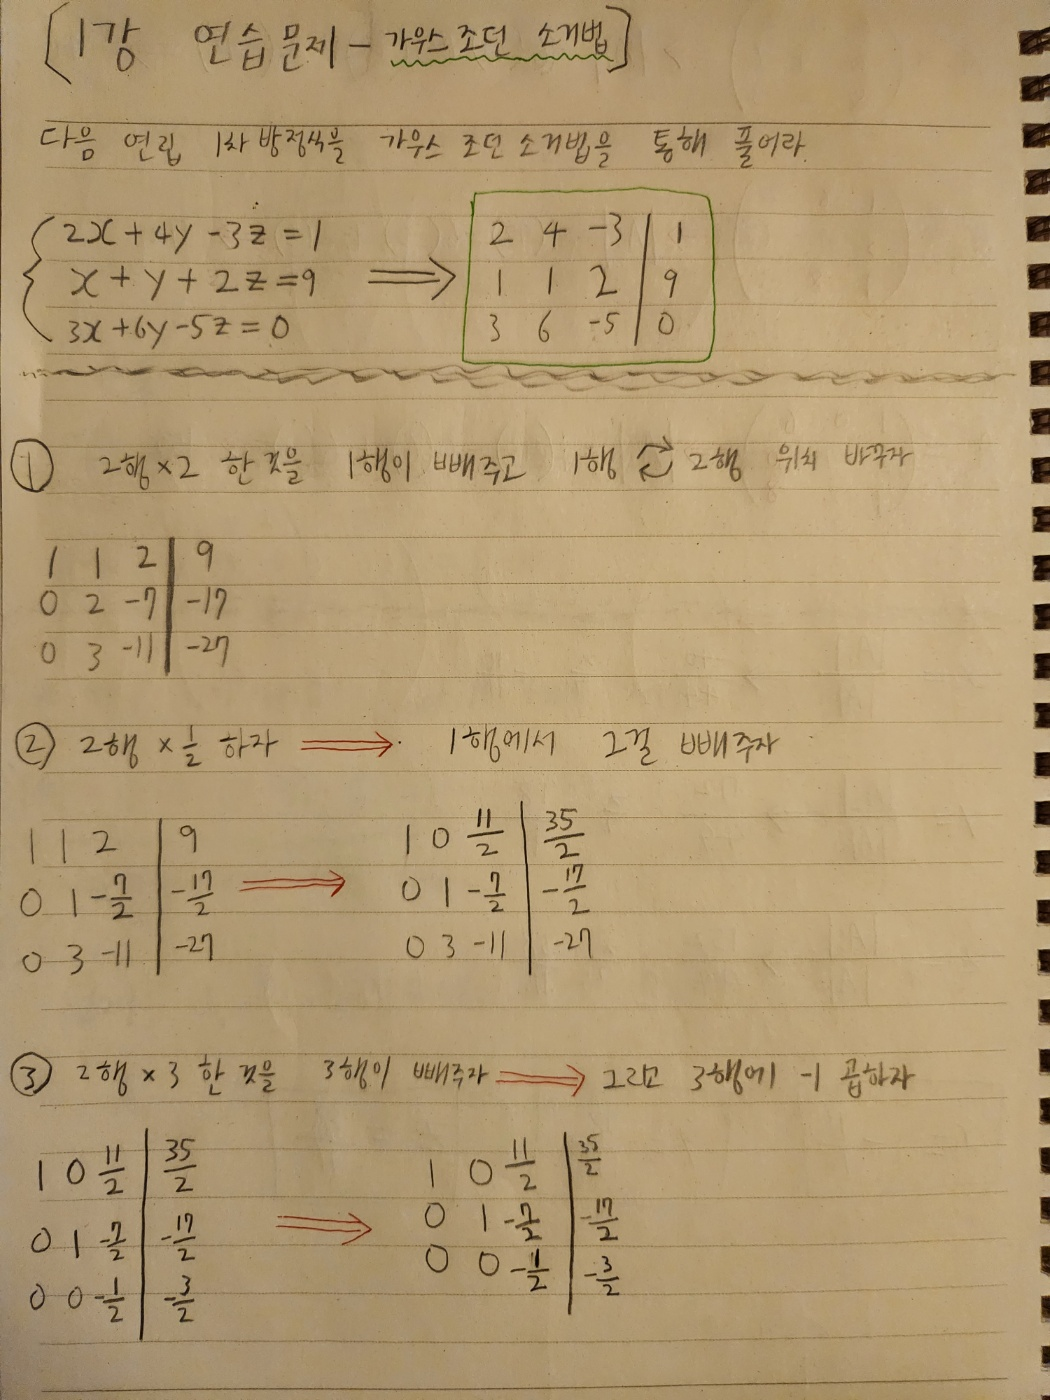 [1강 연습문제 - 가우스 조던 소거법]
다음 연립 1차 방정식을 가우스 조던 소거법을 통해 풀어라.
2x + 4y - 3z = 1
x + y + 2z = 9
3x + 6y - 5z = 0
⇒
2 4 -3 | 1
1 1 2 | 9
3 6 -5 | 0
① 2행 × 2 한 것을 1행이 빼주고 1행 ⇄ 2행 위치 바꾸자
1 1 2 | 9
0 2 -7 | -17
0 3 -11 | -27
② 2행 × 1/2 하자 ⇒ 1행에서 그걸 빼주자
1 1 2 | 9
0 1 -7/2 | -17/2
0 3 -11 | -27
⇒
1 0 11/2 | 35/2
0 1 -7/2 | -17/2
0 3 -11 | -27
③ 2행 × 3 한 것을 3행이 빼주자 ⇒ 그리고 3행에 -1 곱하자
1 0 11/2 | 35/2
0 1 -7/2 | -17/2
0 0 -1/2 | -3/2
⇒
1 0 11/2 | 35/2
0 1 -7/2 | -17/2
0 0 -1/2 | -3/2